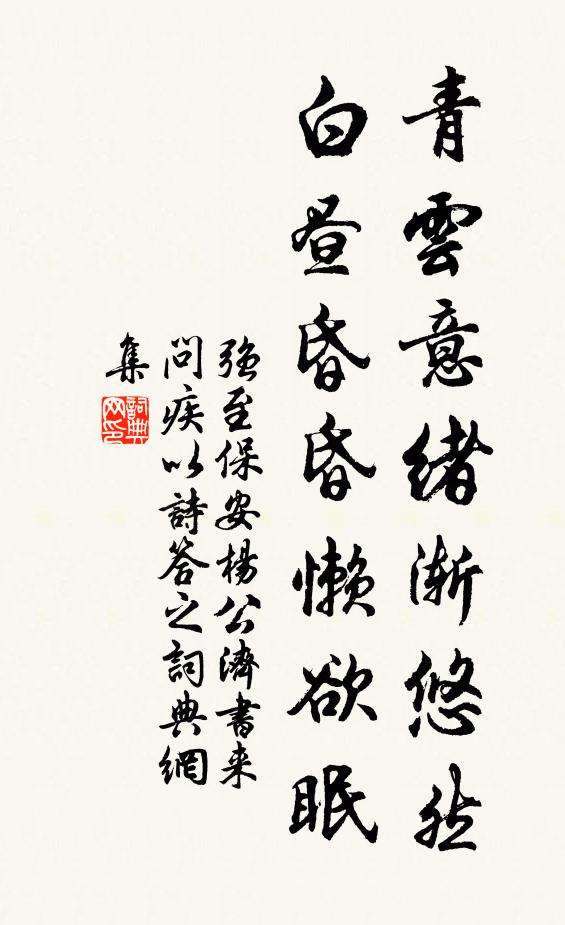 青雲意緒漸悠然
白昼昏昏懒欲眠
強至保安楊公濟書来
問疾以詩答之詞典網
集
詞典网印